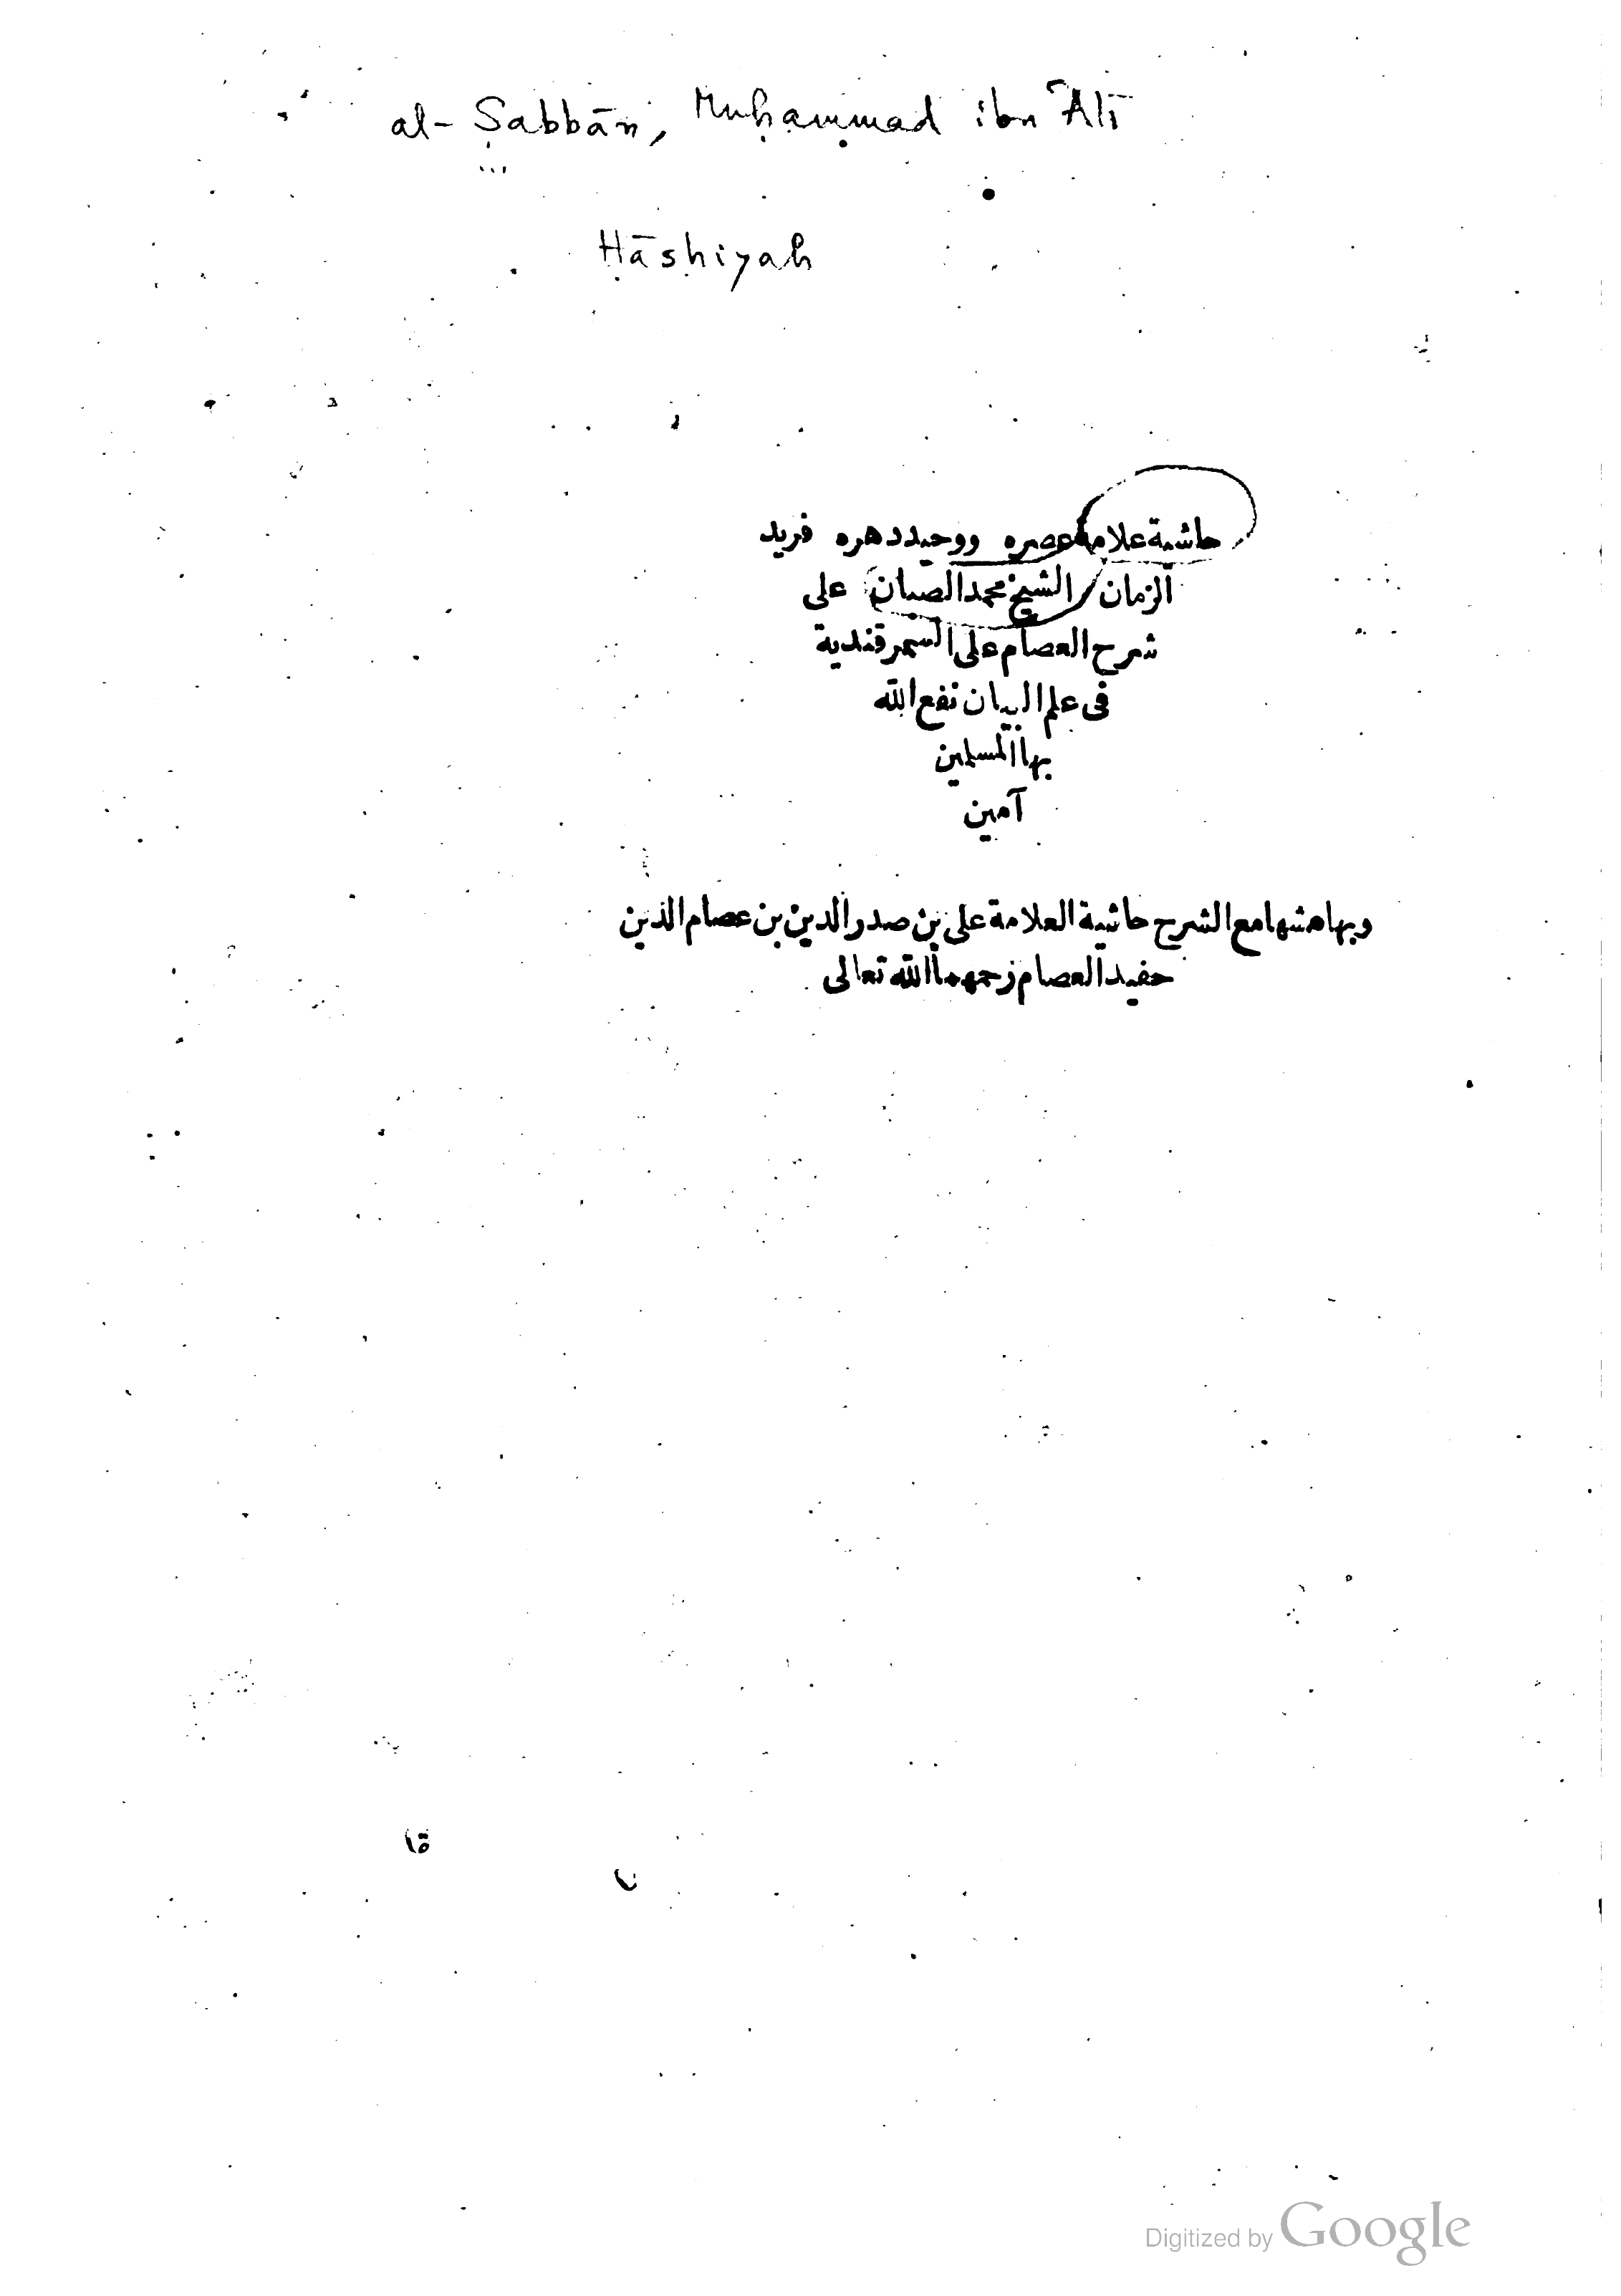 al-Ṣabbān, Muḥammad ibn ʿAlī
Ḥāshiyah
حاشية علامة عصره ووحيد دهره فريد
الزمان الشيخ محمد الصبان على
شرح العصام على السمرقندية
فى علم البيان نفع الله
بها المسلمين
آمين
وبهامشها مع الشرح حاشية العلامة على بن صدر الدين بن عصام الدين
حفيد العصام رحمهما الله تعالى
Digitized by Google